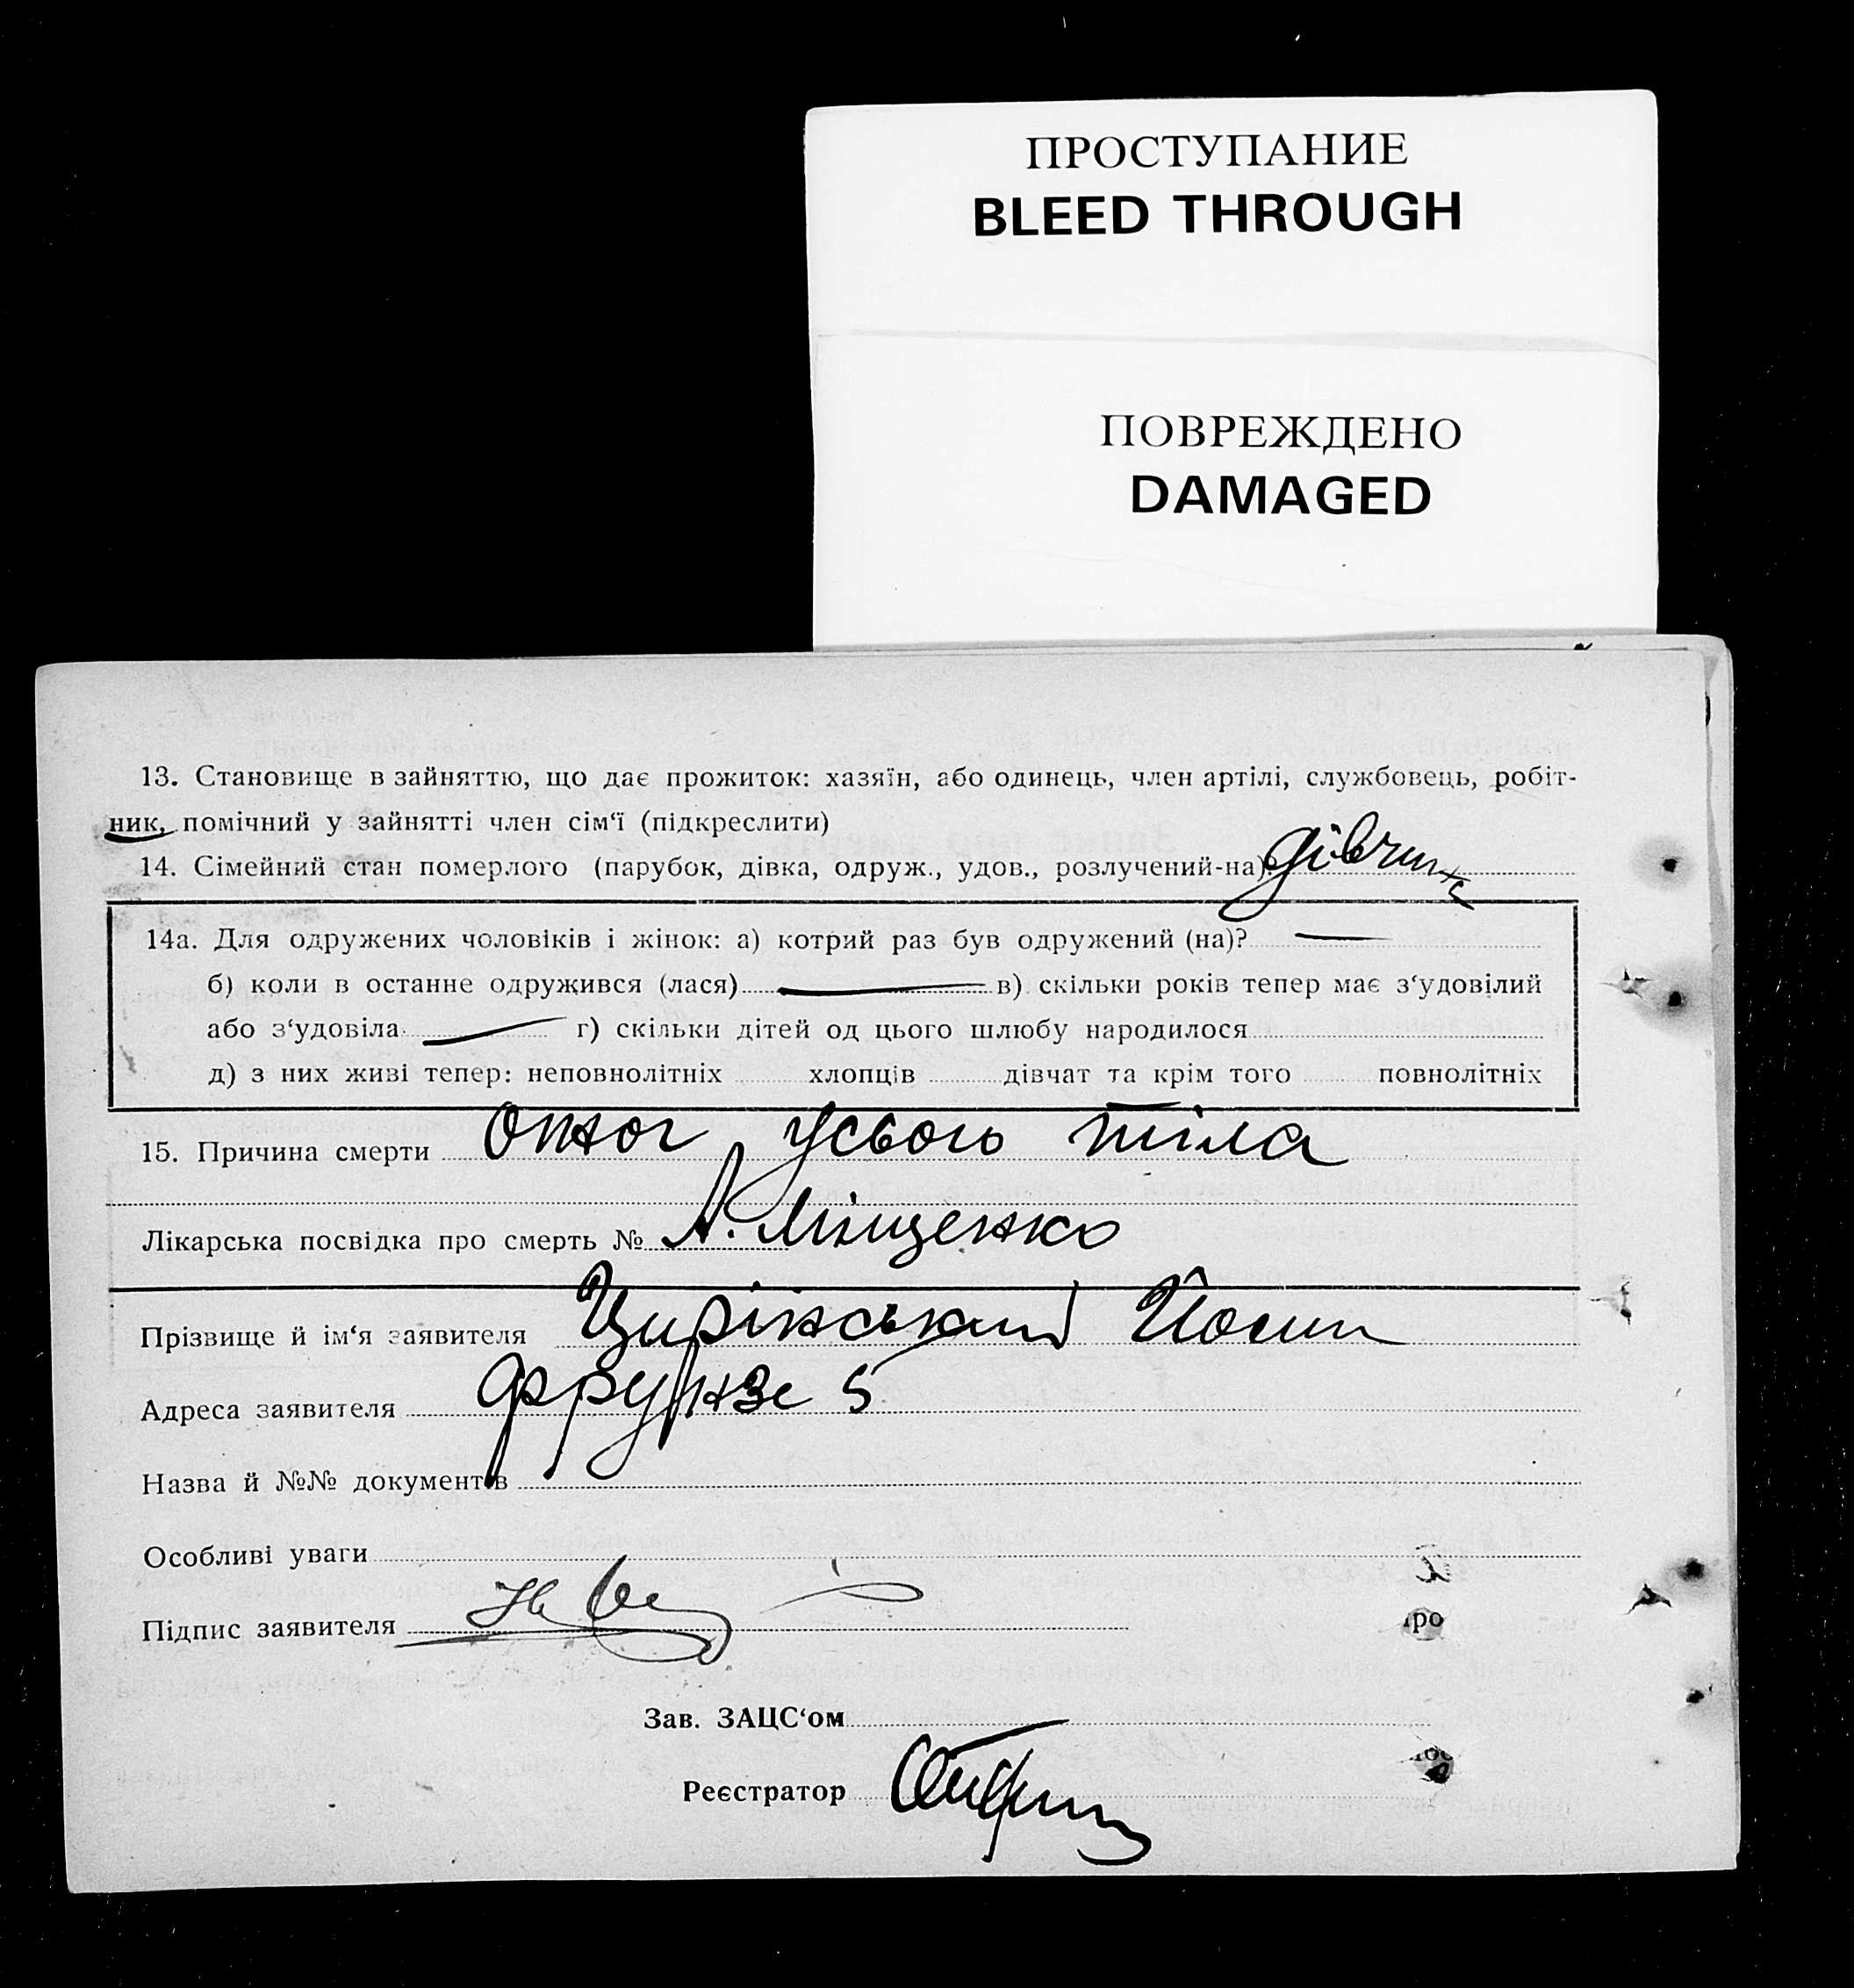 ПРОСТУПАНИЕ
BLEED THROUGH
ПОВРЕЖДЕНО
DAMAGED
13. Становище в зайняттю, що дає прожиток: хазяїн, або одинець, член артілі, службовець, робіт-
ник, помічний у зайнятті член сім‘ї (підкреслити)
14. Сімейний стан померлого (парубок, дівка, одруж., удов., розлучений-на)? дівчина
14а. Для одружених чоловіків і жінок: а) котрий раз був одружений (на)? —
б) коли в останне одружився (лася) — в) скільки років тепер має з‘удовілий
або з‘удовіла — г) скільки дітей од цього шлюбу народилося
д) з них живі тепер: неповнолітніх хлопців дівчат та крім того повнолітніх
15. Причина смерти Опког усього тіла
Лікарська посвідка про смерть № А. Міщенко
Прізвище й ім‘я заявителя Цирінський Йосип
Адреса заявителя Фрунзе 5
Назва й №№ документів
Особливі уваги
Підпис заявителя
Зав. ЗАЦС‘ом
Реєстратор